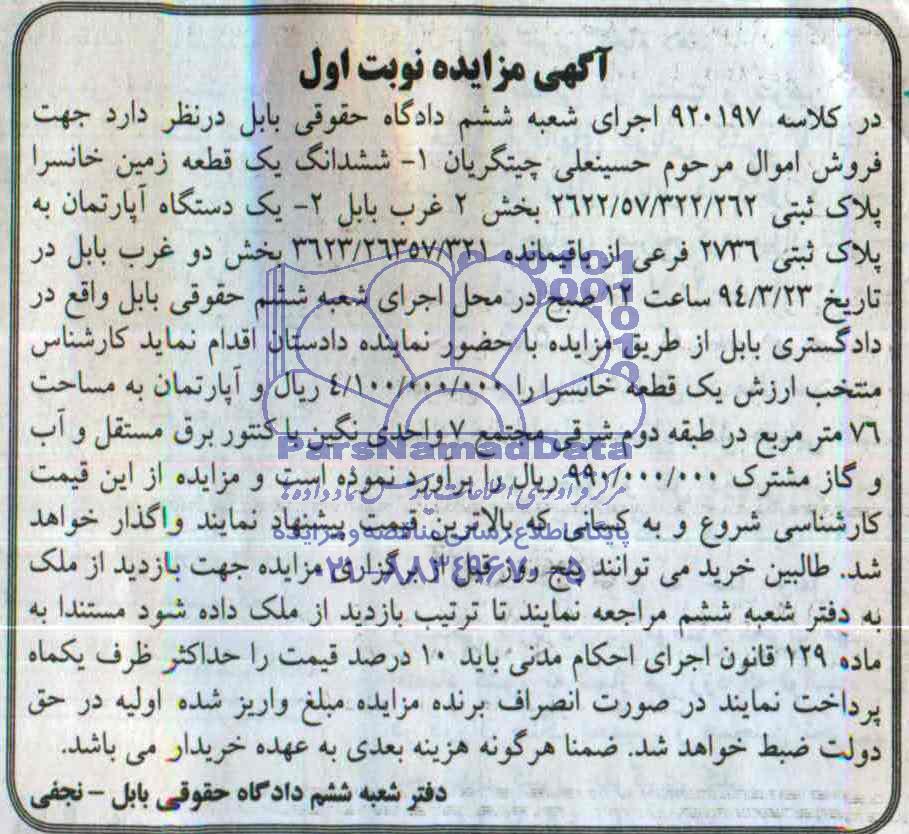 آگهی مزایده نوبت اول
در کلاسه ۹۲۰۱۹۷ اجرای شعبه ششم دادگاه حقوقی بابل درنظر دارد جهت
فروش اموال مرحوم حسینعلی چیتگریان ۱- ششدانگ یک قطعه زمین خانسرا
پلاک ثبتی ۲۶۲۲/۵۷/۳۲۲/۲۶۲ بخش ۲ غرب بابل ۲- یک دستگاه آپارتمان به
پلاک ثبتی ۲۷۳۶ فرعی از باقیمانده ۳۶۲۳/۲۶۳۵۷/۳۲۱ بخش دو غرب بابل در
تاریخ ۹٤/۳/۲۳ ساعت ۱۲ صبح در محل اجرای شعبه ششم حقوقی بابل واقع در
دادگستری بابل از طریق مزایده با حضور نماینده دادستان اقدام نماید کارشناس
منتخب ارزش یک قطعه خانسرا را ٤/۱۰۰/۰۰۰/۰۰۰ ریال و آپارتمان به مساحت
۷۶ متر مربع در طبقه دوم شرقی مجتمع ۷ واحدی نگین با کنتور برق مستقل و آب
و گاز مشترک ۹۹۰/۰۰۰/۰۰۰ ریال را برآورد نموده است و مزایده از این قیمت
کارشناسی شروع و به کسانی که بالاترین قیمت پیشنهاد نمایند واگذار خواهد
شد. طالبین خرید می توانند پنج روز قبل از برگزاری مزایده جهت بازدید از ملک
به دفتر شعبه ششم مراجعه نمایند تا ترتیب بازدید از ملک داده شود مستندا به
ماده ۱۲۹ قانون اجرای احکام مدنی باید ۱۰ درصد قیمت را حداکثر ظرف یکماه
پرداخت نمایند در صورت انصراف برنده مزایده مبلغ واریز شده اولیه در حق
دولت ضبط خواهد شد. ضمنا هرگونه هزینه بعدی به عهده خریدار می باشد.
دفتر شعبه ششم دادگاه حقوقی بابل – نجفی
ParsNamadData
پایگاه اطلاع رسانی مناقصه و مزایده